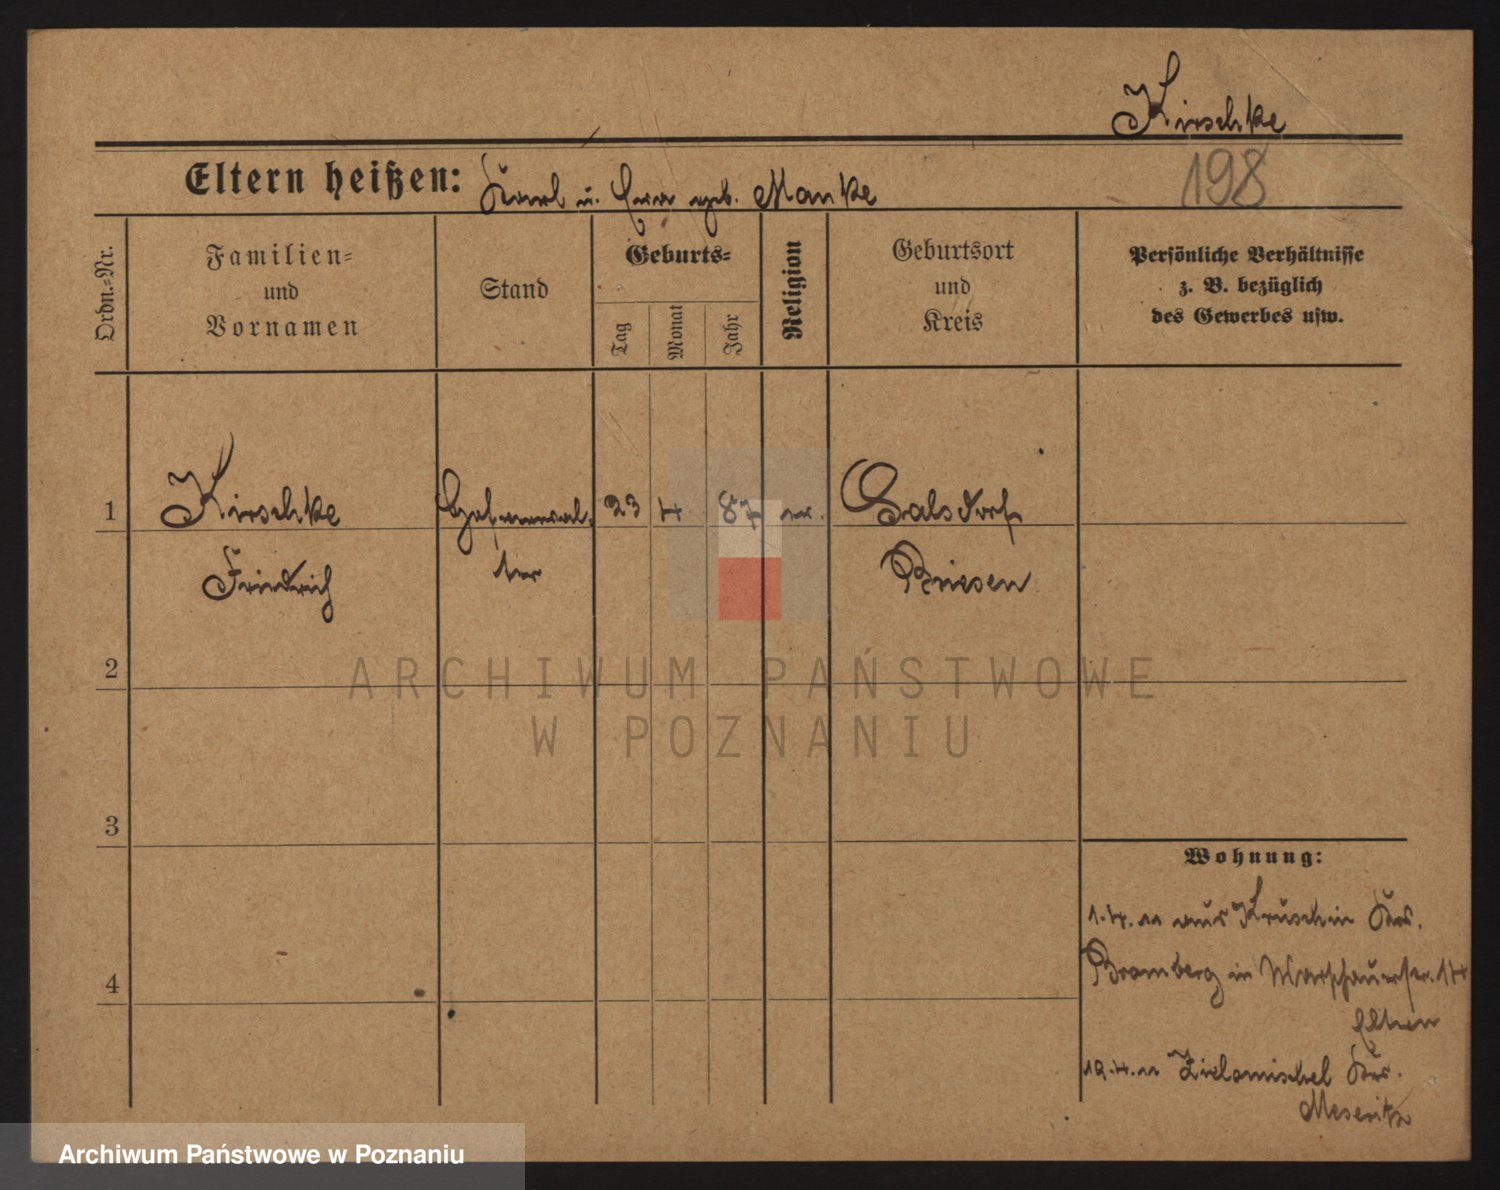 Kirschke
198
Eltern heißen: Karl u. Eva geb. Manke
Ordn.=Nr.
Familien=
und
Vornamen
Stand
Geburts=
Tag
Monat
Jahr
Religion
Geburtsort
und
Kreis
Persönliche Verhältnisse
z. B. bezüglich
des Gewerbes usw.
1 Kirschke 23 4 87 ev. Galsdorf
Friedrich Briesen
2
3
4
Wohnung:
1.4.11 aus Kruschin Krs.
Bromberg in Warschauerstr. 14
Eltern
19.4.11 Zielomischel Krs.
Meseritz
ARCHIWUM PAŃSTWOWE
W POZNANIU
Archiwum Państwowe w Poznaniu